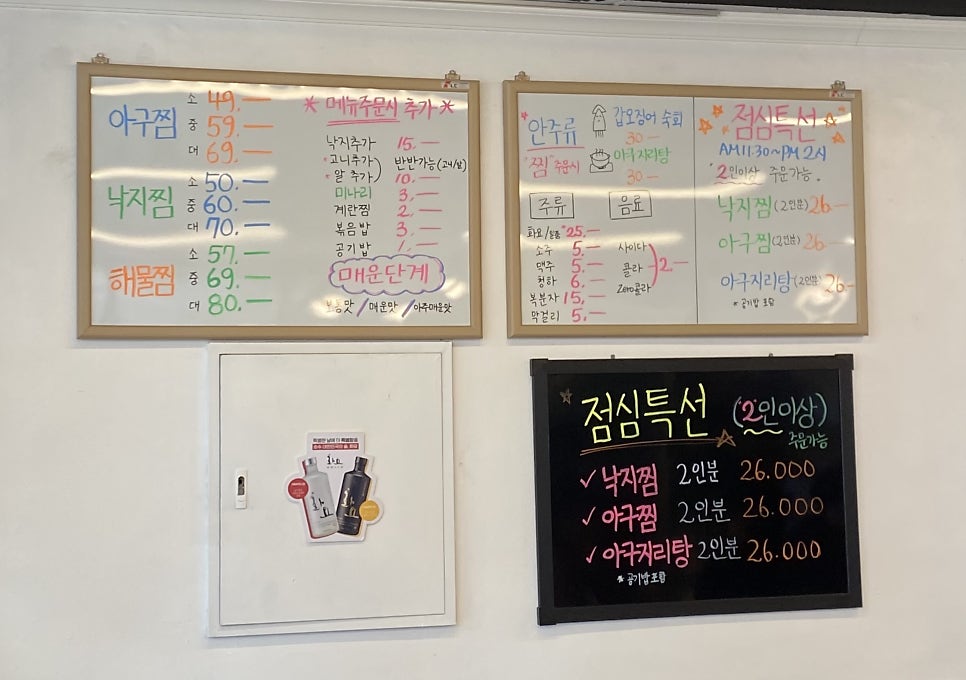 아구찜
소 49.—
중 59.—
대 69.—
낙지찜
소 50.—
중 60.—
대 70.—
해물찜
소 57.—
중 69.—
대 80.—
* 메뉴주문시 추가 *
낙지추가 15.—
*고니추가) 반반가능(고니/알)
*알 추가) 10.—
미나리 3.—
계란찜 2.—
볶음밥 3.—
공기밥 1.—
매운단계
보통맛 / 매운맛 / 아주매운맛
*안주류
"찜" 주문시
갑오징어 숙회
30 —
아구지리탕
30 —
주류
화요/ 25.—
소주 5.—
맥주 5.—
청하 6.—
복분자 15.—
막걸리 5.—
음료
사이다
콜라 2.—
Zero콜라
점심특선
AM11.30~PM 2시
"2인이상 주문가능.
낙지찜(2인분) 26.—
아구찜(2인분) 26.—
아구지리탕(2인분) 26.—
*공기밥 포함
점심특선 ("2"인이상)
주문가능
✓ 낙지찜 2인분 26.000
✓ 아구찜 2인분 26.000
✓ 아구지리탕 2인분 26.000
*공기밥포함
특별한 날에 더 특별함을
화요
화요
화요